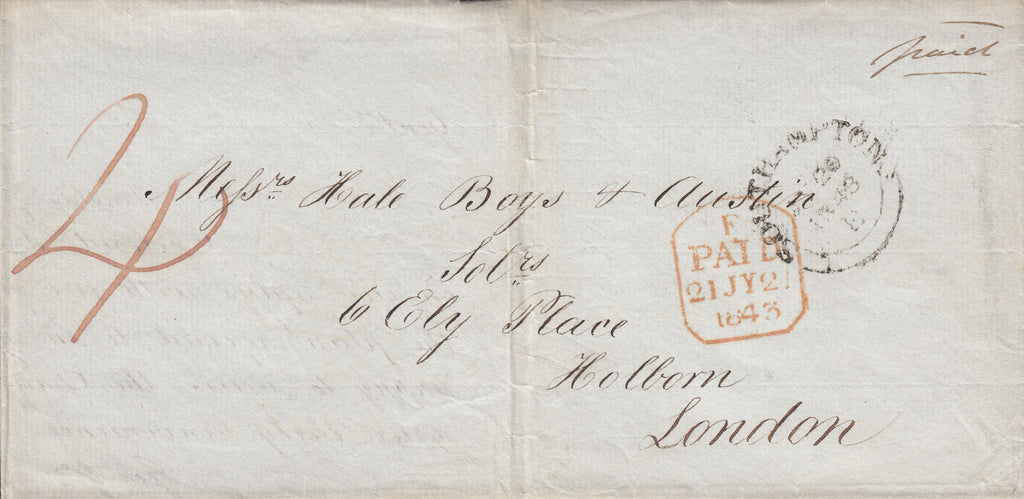 paid
4
SOUTHAMPTON
Messrs Hale Boys & Austin
F
PAID
21 JY 21
1843
Solrs
6 Ely Place
Holborn
London